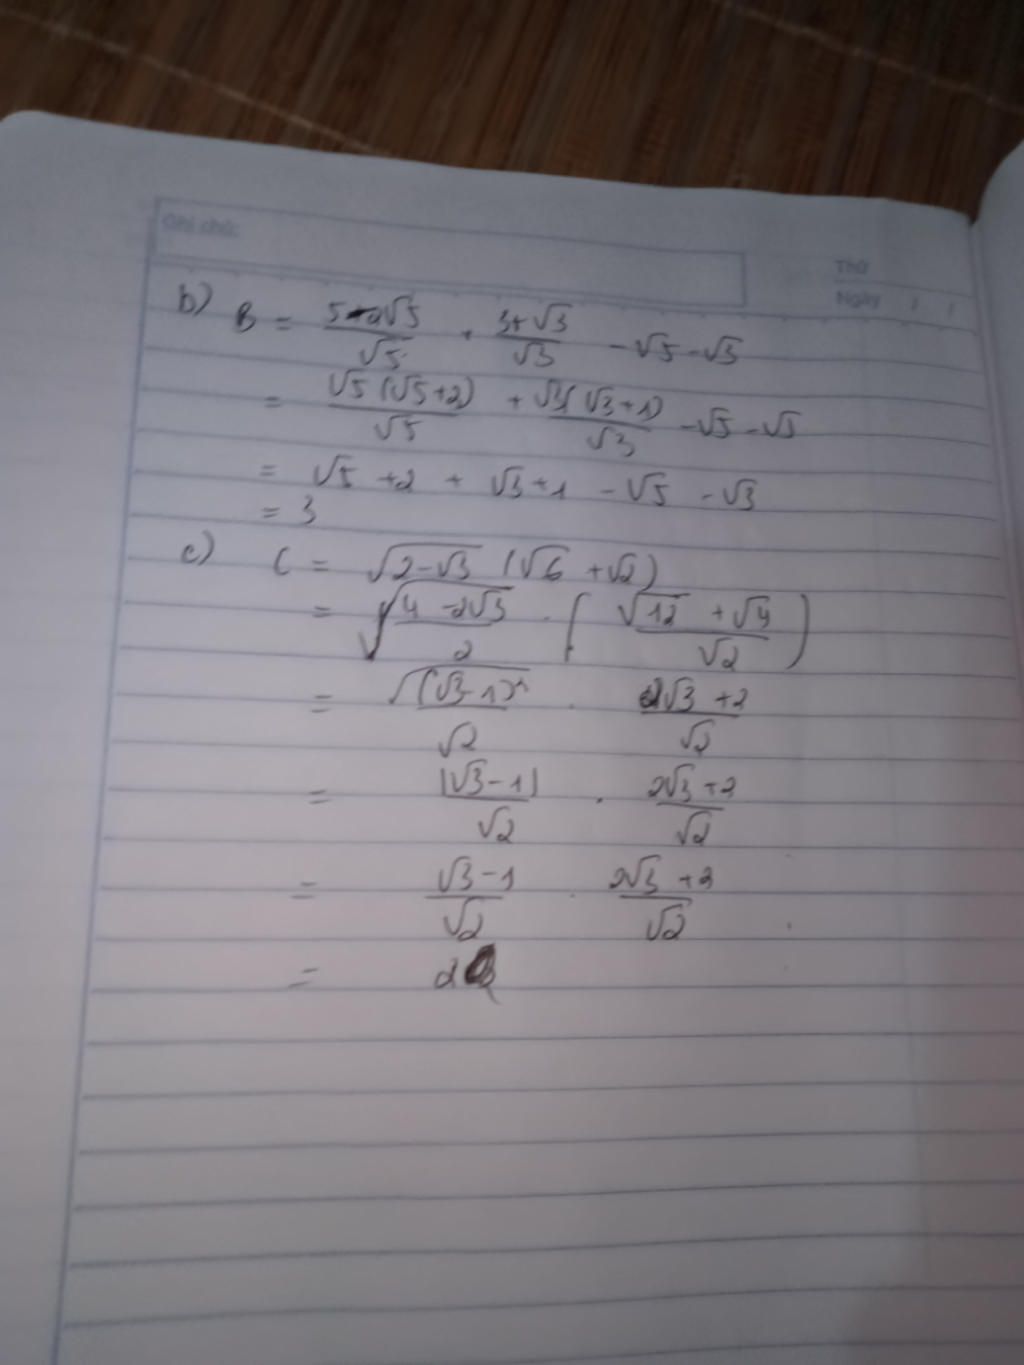 Ghi chú:
Thứ
Ngày / /
b) B = (5+2√5)/√5 + (3+√3)/√3 - √5 - √3
= √5(√5+2)/√5 + √3(√3+1)/√3 - √5 - √5
= √5 + 2 + √3 + 1 - √5 - √3
= 3
c) C = √(2-√3) (√6 + √2)
= √((4-2√3)/2) . ((√12 + √4)/√2)
= √((√3-1)²)/√2 . (2√3+2)/√2
= |√3-1|/√2 . (2√3+2)/√2
= (√3-1)/√2 . (2√3+2)/√2
= 2